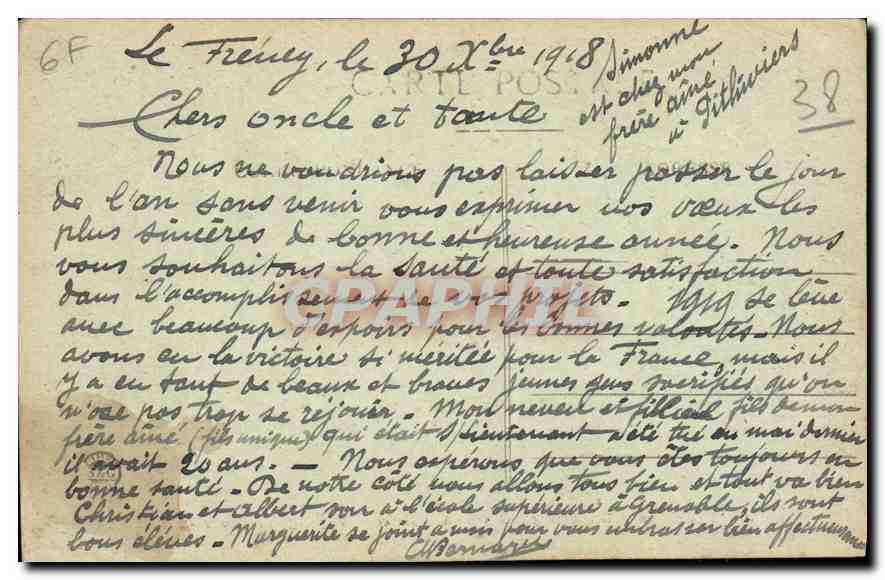 6F
Le Fréney, le 30 Xbre 1918
CARTE POSTALE
Simonne
est chez mon
frère aîné
à Pithiviers
38
Chers oncle et tante
Nous ne voudrions pas laisser passer le jour
de l'an sans venir vous exprimer nos vœux les
plus sincères de bonne et heureuse année. Nous
vous souhaitons la santé et toute satisfaction
dans l'accomplissement de vos projets. 1919 se lève
avec beaucoup d'espoirs pour les bonnes volontés. Nous
avons eu la victoire si méritée pour la France, mais il
y a eu tant de beaux et braves jeunes gens sacrifiés qu'on
n'ose pas trop se réjouir. Mon neveu et filleul fils de mon
frère aîné, (fils unique) qui était S/Lieutenant a été tué en mai dernier
il avait 20 ans. — Nous espérons que vous êtes toujours en
bonne santé. De notre côté nous allons tous bien et tout va bien
Christian et Albert son à l'école supérieure à Grenoble, ils sont
bons élèves. Marguerite se joint à moi pour vous embrasser bien affectueusement
CBernard
CPAPHIL